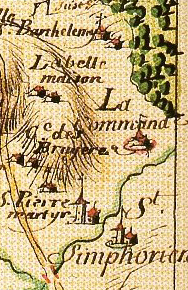 Barthelemi
La belle
maison
La
Command
Gr. des
Brugeres
S. Pierre
martyr
St.
Simphorien